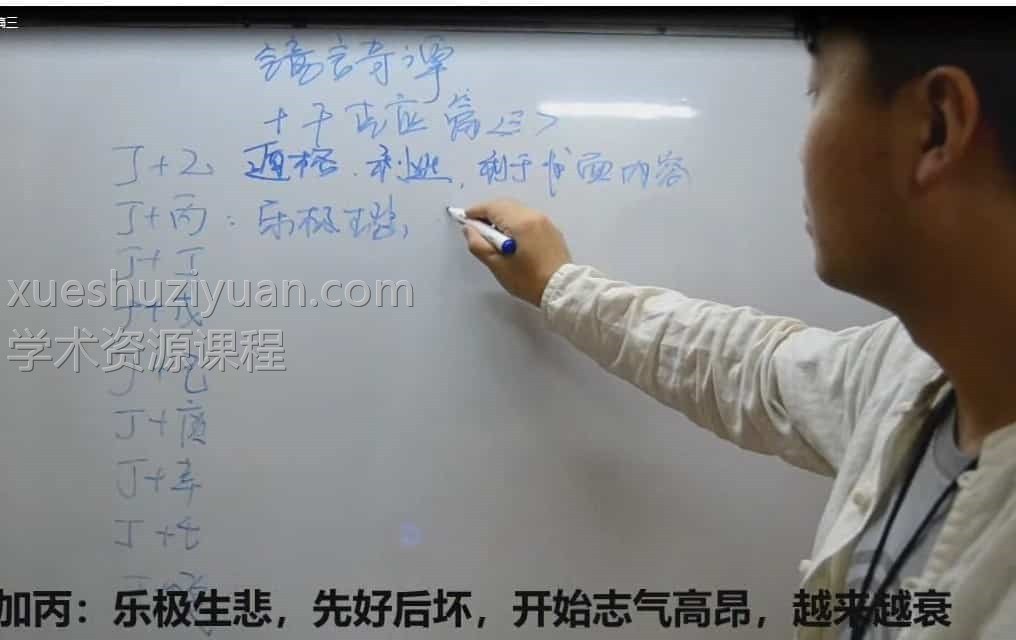 高三
奇谭
十干克应篇<三>
丁+乙、遁格、利于书面内容
丁+丙：乐极生悲，
丁+丁
xueshuziyuan.com
丁+戊
学术资源课程
丁+己
丁+庚
丁+辛
丁+壬
丁+癸
加丙：乐极生悲，先好后坏，开始志气高昂，越来越衰